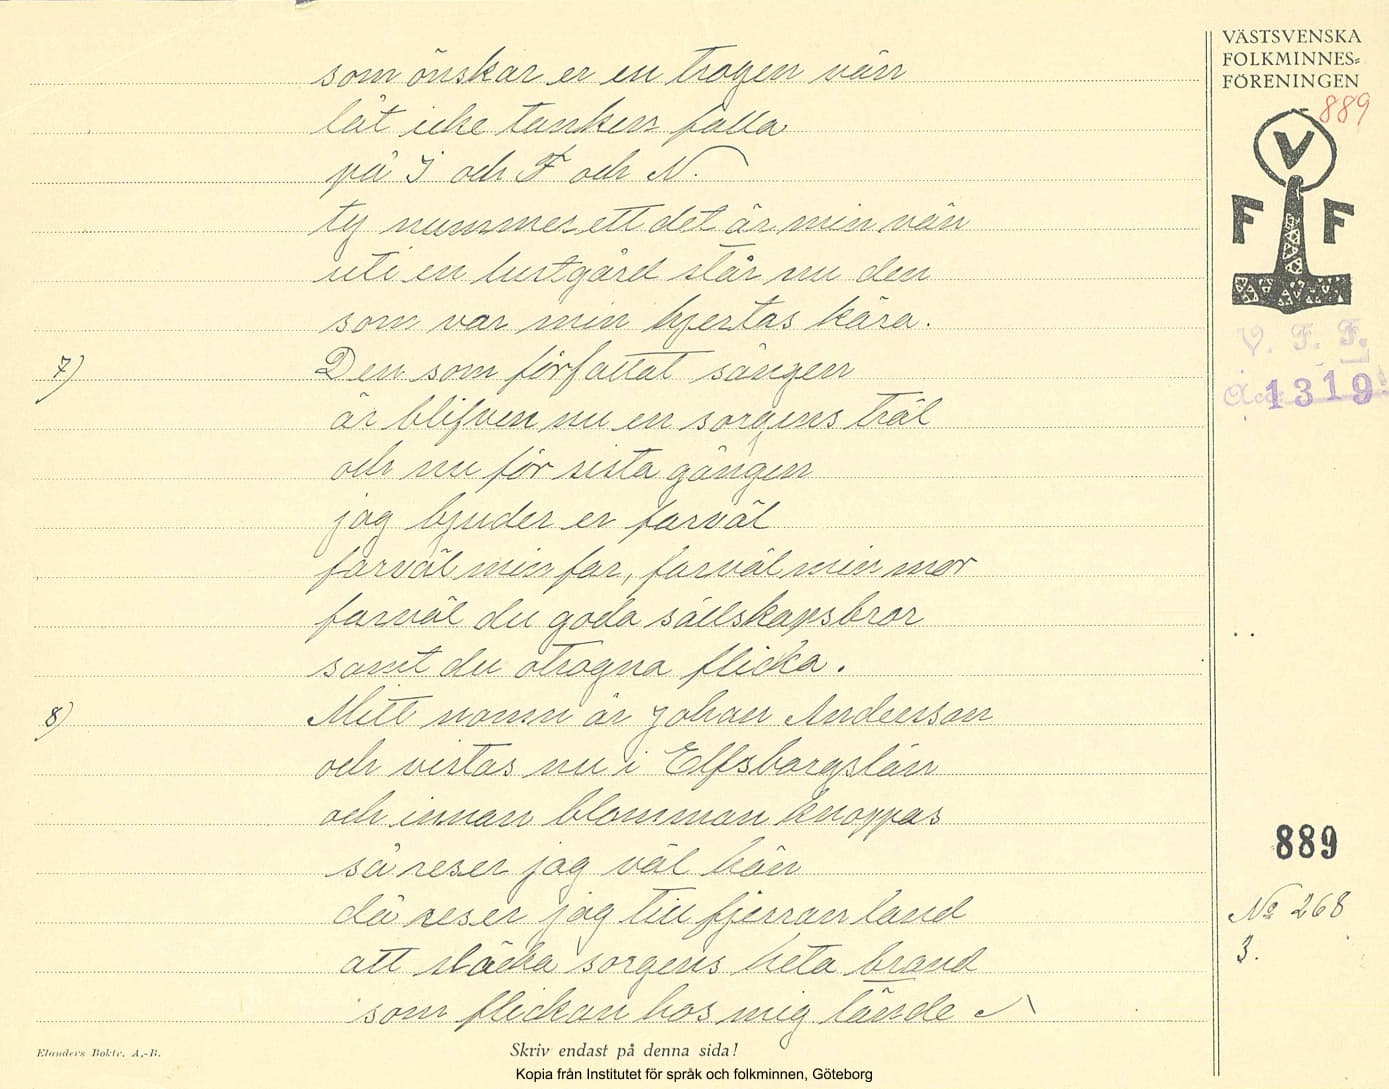 VÄSTSVENSKA
FOLKMINNES=
FÖRENINGEN
889
V
F F
V. F. F.
Acc. 1319
som önskar er en trogen vän
låt icke tanken falla
på I och F och N.
ty nummer ett det är min vän
uti en lustgård står nu den
som var min hjertas kära.
7) Den som författat sången
är blifven nu en sorgens träl
och nu för sista gången
jag bjuder er farväl
farväl min far, farväl min mor
farväl du goda sällskapsbror
samt du otrogna flicka.
8) Mitt namn är Johan Anderson
och vistas nu i Elfsborgslän
och innan blomman knoppas
så reser jag väl hän
då reser jag till fjerran land
att släcka sorgens heta brand
som flickan hos mig tände
889
No 268
3.
Elanders Boktr. A.-B.
Skriv endast på denna sida!
Kopia från Institutet för språk och folkminnen, Göteborg